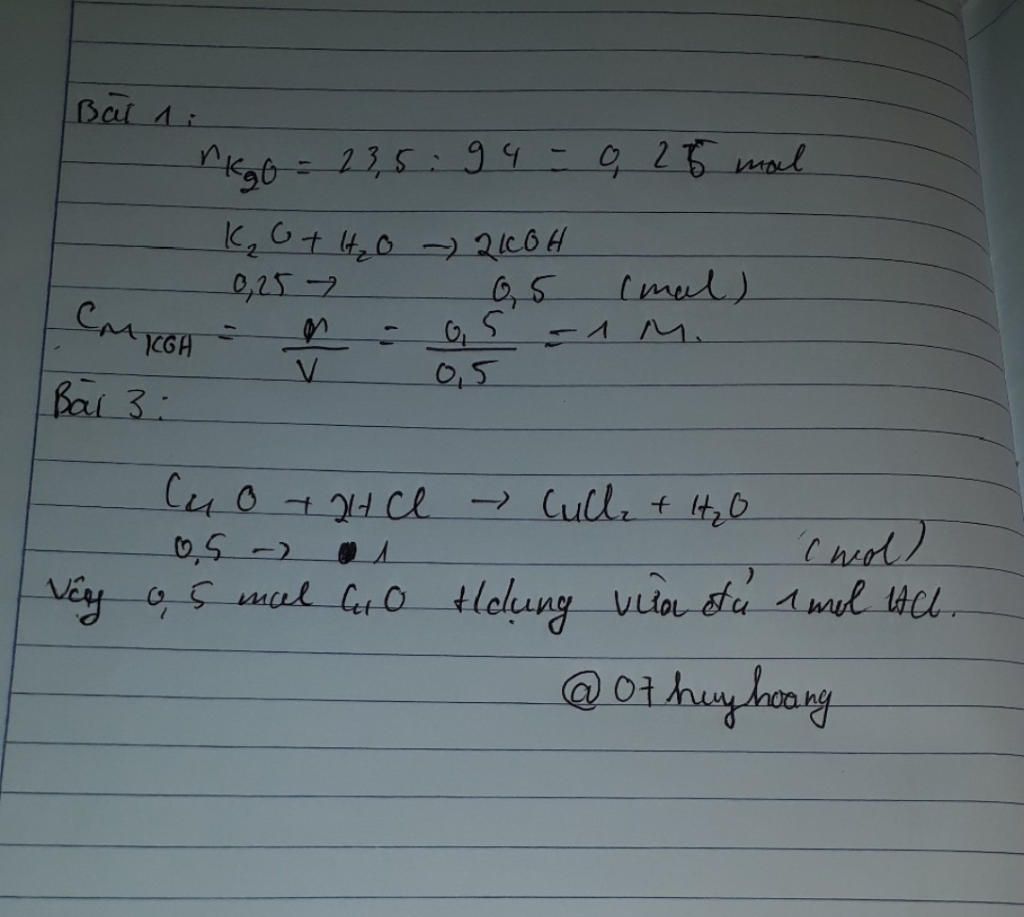 Bài 1:
nK2O = 23,5 : 94 = 0,25 mol
K2O + H2O → 2KOH
0,25 → 0,5 (mol)
CM KOH = n/V = 0,5/0,5 = 1 M.
Bài 3:
CuO + 2HCl → CuCl2 + H2O
0,5 → 1 (mol)
Vậy 0,5 mol CuO t/dụng vừa đủ 1 mol HCl.
@07huyhoang